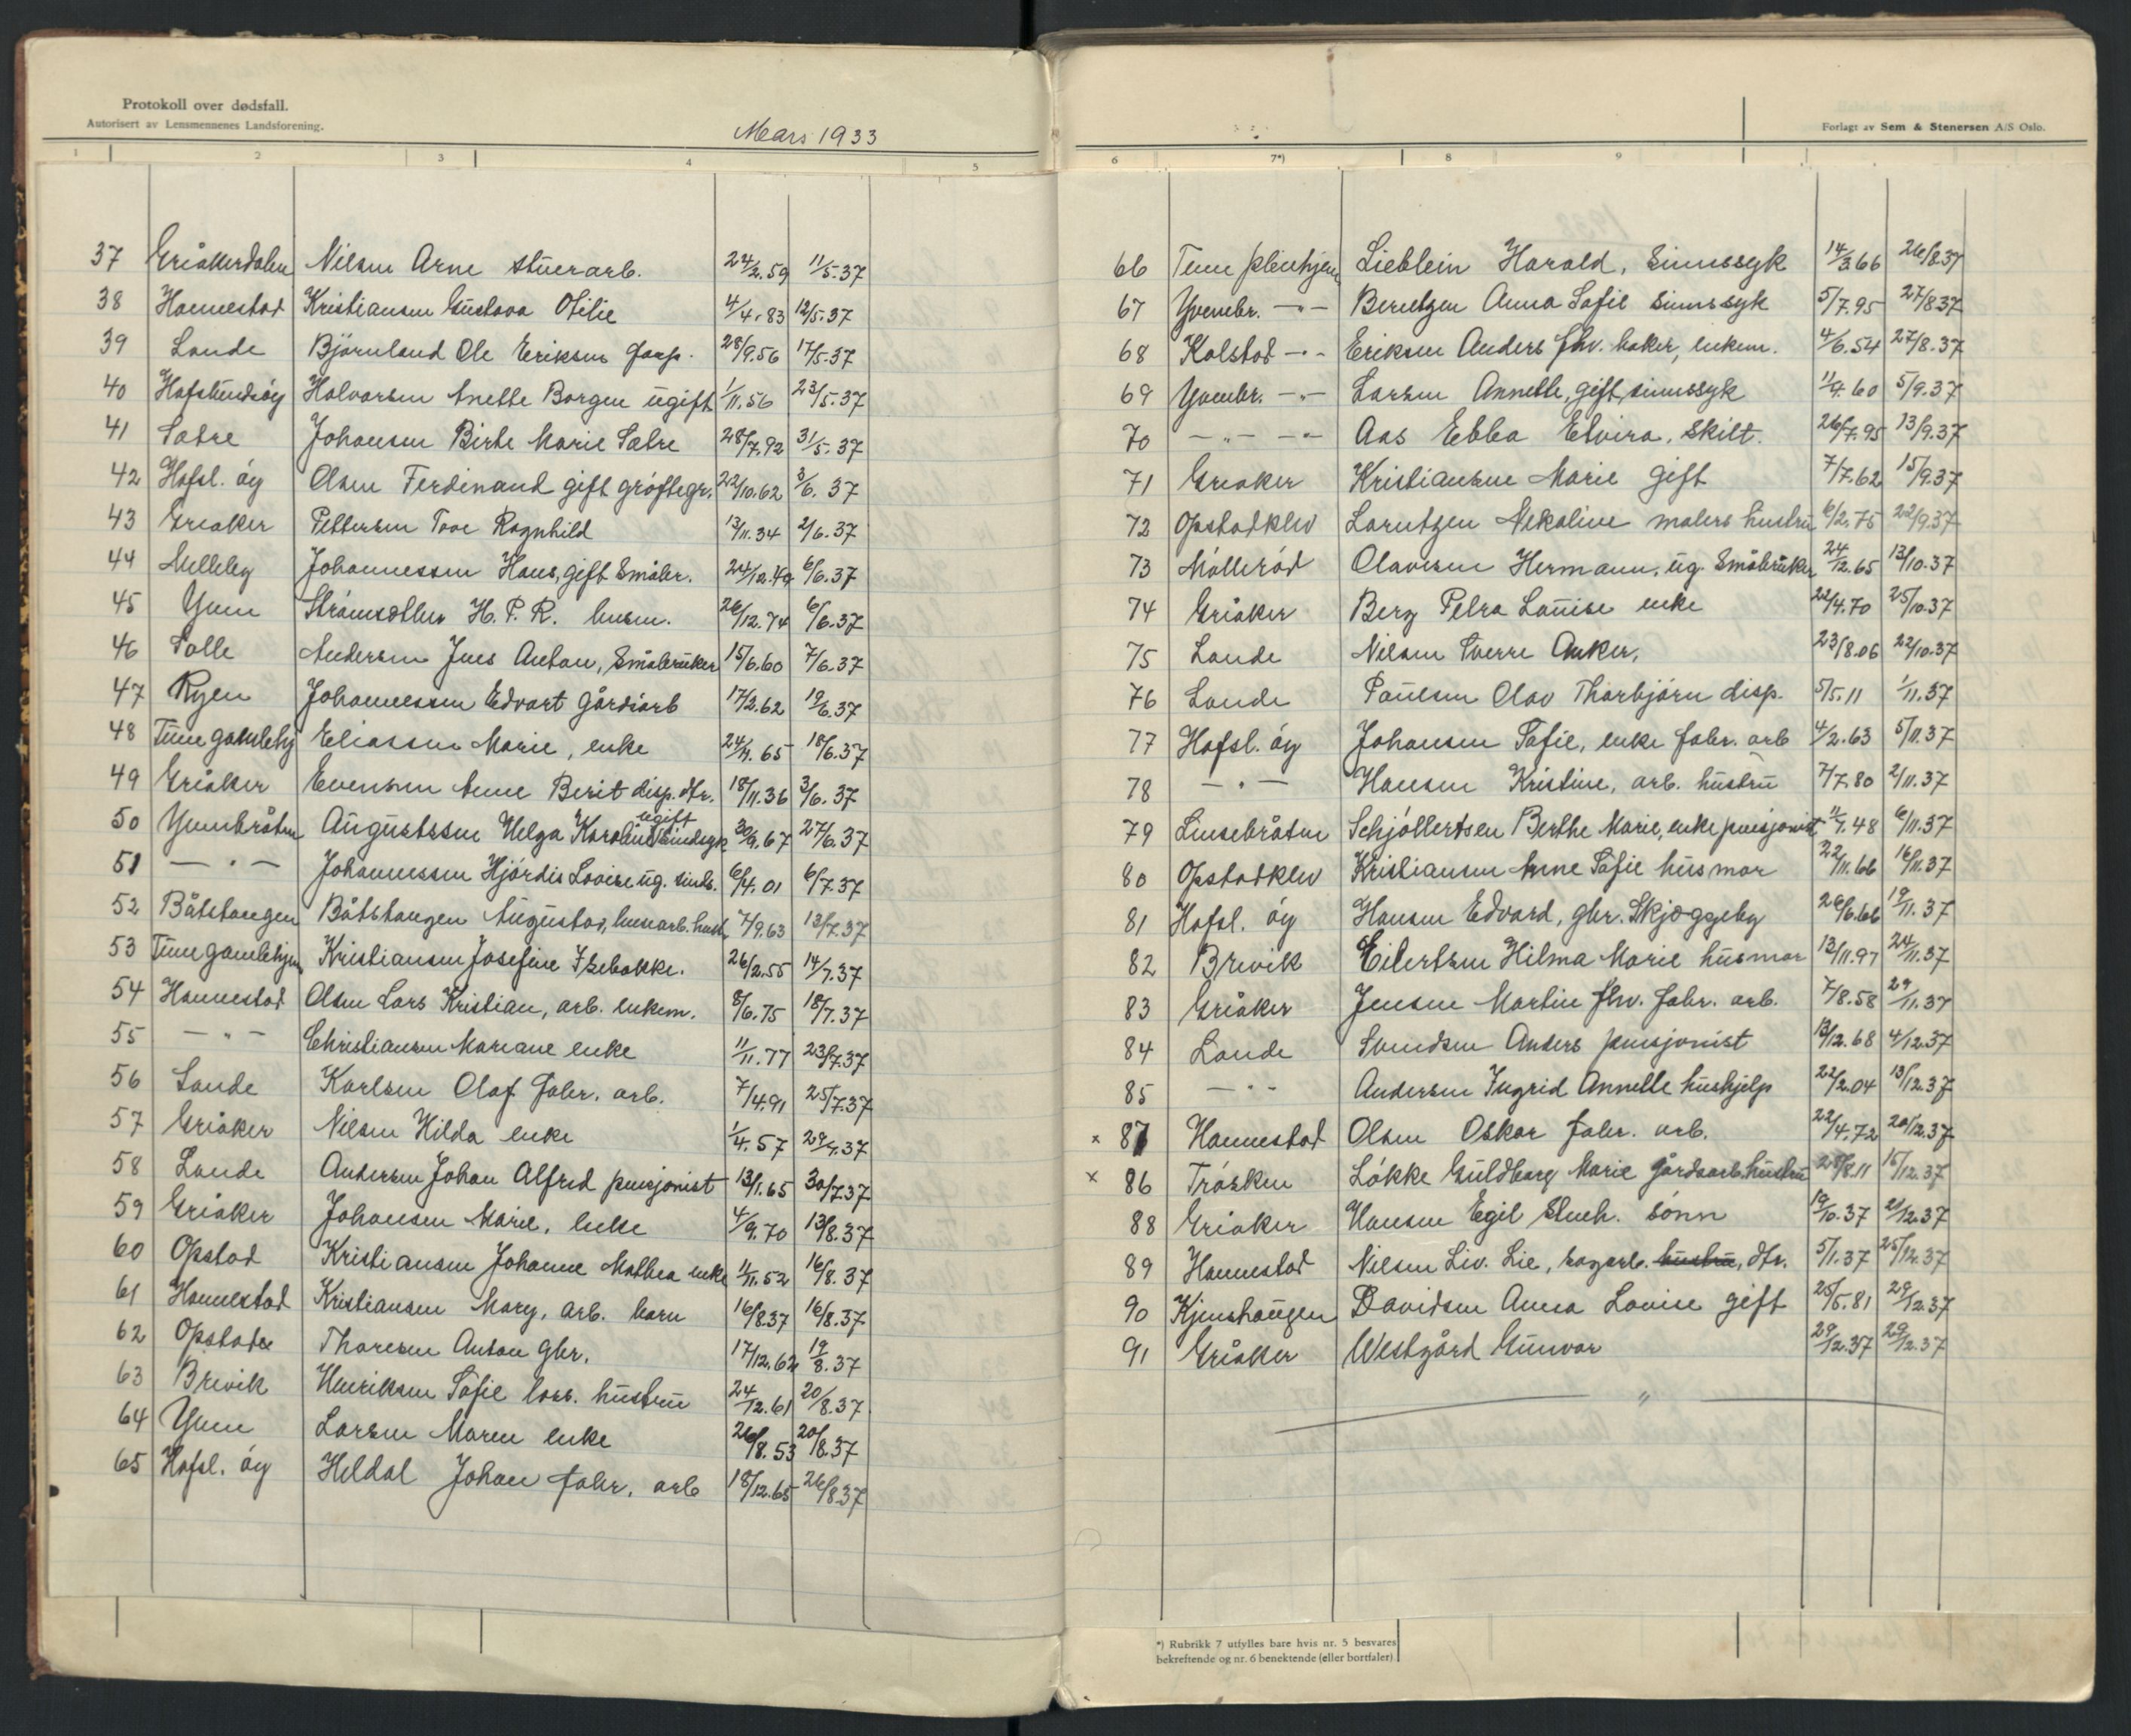 Protokoll over dødsfall.
Autorisert av Lensmennenes Landsforening.
Mars 1933
1 2 3 4 5
37 Gråkerdalen Nilsen Arne stuerarb. 24/2.59 11/5.37
38 Hannestad Kristiansen Gustava Otilie 4/4.83 12/5.37
39 Lande Björnland Ole Eriksen 28/9.56 17/5.37
40 Hafslundsøy Halvorsen Anette Borgen ugift 1/11.56 23/5.37
41 Sætre Johansen Birte Marie Sætre 28/7.92 31/5.37
42 Hafsl. øy Olsen Ferdinand gift grøftegr. 22/10.62 3/6.37
43 Greaker Pettersen Tove Ragnhild 13/11.34 2/6.37
44 Melleby Johannessen Hans, gift småbr. 24/12.49 6/6.37
45 Yven Strømsæther H. P. R. 26/12.74 6/6.37
46 Solle Andersen Jens Anton, Småbruker 15/6.60 7/6.37
47 Ryen Johannessen Edvart Gårdsarb 17/2.62 19/6.37
48 Tune gamlehj Eliassen Marie, enke 24/4.65 18/6.37
49 Gråker Evensen Anne Berit disp. dtr. 18/11.36 3/6.37
50 Yvenbråten Augustssen Helga Karoline ugift sindsyk 30/9.67 27/6.37
51 — " — Johannessen Hjørdis Lovise ug. sinds. 6/4.01 6/7.37
52 Båtstangen Båtstangen Augusta, 7/9.63 13/7.37
53 Tune gamlehjem Kristiansen Josefine Isebakke. 26/2.55 14/7.37
54 Hannestad Olsen Lars Kristian, arb. enkem. 8/6.75 18/7.37
55 — " — Christiansen Mariane enke 11/11.77 23/7.37
56 Lande Karlsen Olaf fabr. arb. 7/4.91 25/7.37
57 Gråker Nilsen Hilda enke 1/4.57 29/7.37
58 Lande Andersen Johan Alfred pensjonist 13/1.65 30/7.37
59 Gråker Johansen Marie, enke 4/9.70 13/8.37
60 Opstad Kristiansen Johanne Mathea enke 11/11.52 16/8.37
61 Hannestad Kristiansen Mary, arb. barn 16/8.37 16/8.37
62 Opstad Thoresen Anton gbr. 17/12.62 19/8.37
63 Brevik Henriksen Sofie hustru 24/12.61 20/8.37
64 Yven Larsen Maren enke 26/8.53 20/8.37
65 Hafsl. øy Heldal Johan fabr. arb 18/12.65 26/8.37
Forlagt av Sem & Stenersen A/S Oslo.
6 7*) 8 9
66 Tune pleiehjem Lieblein Harald, Sinnssyk 14/3.66 26/8.37
67 Yvenbr. — " — Berntzen Anna Sofie Sinnssyk 5/7.95 27/8.37
68 Kalstad — " — Eriksen Anders fhv. baker, enkem. 4/6.54 27/8.37
69 Yvenbr. — " — Larsen Annette, gift, sinnssyk 11/4.60 5/9.37
70 — " — — " — Aas Ebba Elvira, skilt. 26/7.95 13/9.37
71 Greaker Kristiansen Marie gift 7/7.62 15/9.37
72 Opstadklev Larntzen Nekoline malers hustru 6/2.75 22/9.37
73 Møllerød Olavesen Hermann, ug. Småbruker 24/12.65 13/10.37
74 Gråker Berg Petra Louise enke 22/4.70 25/10.37
75 Lande Nilsen Sverre Anker, 23/8.06 22/10.37
76 Lande Paulsen Olav Thorbjørn disp. 5/5.11 1/11.37
77 Hafsl. øy Johansen Sofie, enke fabr. arb 4/2.63 5/11.37
78 — " — Hansen Kristine, arb. hustru 7/7.80 2/11.37
79 Linsebråten Schjöllertsen Berthe Marie, enke pensjonist 11/7.48 6/11.37
80 Opstadklev Kristiansen Anne Sofie husmor 22/11.66 16/11.37
81 Hafsl. øy Hansen Edvard, gbr. Skjøggeby 26/6.66 19/11.37
82 Brevik Eilertsen Hilma Marie husmor 13/11.97 24/11.37
83 Gråker Jensen Martin fhv. fabr. arb. 7/8.58 29/11.37
84 Lande Svendsen Anders pensjonist 13/12.68 4/12.37
85 — " — Andersen Ingrid Annette hushjelp 22/2.04 13/12.37
x 87 Hannestad Olsen Oskar fabr. arb. 22/4.72 20/12.37
x 86 Trøsken Løkke Guldborg Marie gårdsarb. hustru 28/8.11 15/12.37
88 Greaker Hansen Egil sønn 19/10.37 21/12.37
89 Hannestad Nilsen Liv. Lie, sagarb. hustru, dtr. 5/1.37 25/12.37
90 Kjenshaugen Davidsen Anna Lovise gift 25/5.81 29/12.37
91 Gråker Westgård Gunvor 29/12.37 29/12.37
"
*) Rubrikk 7 utfylles bare hvis nr. 5 besvares
bekreftende og nr. 6 benektende (eller bortfaler).